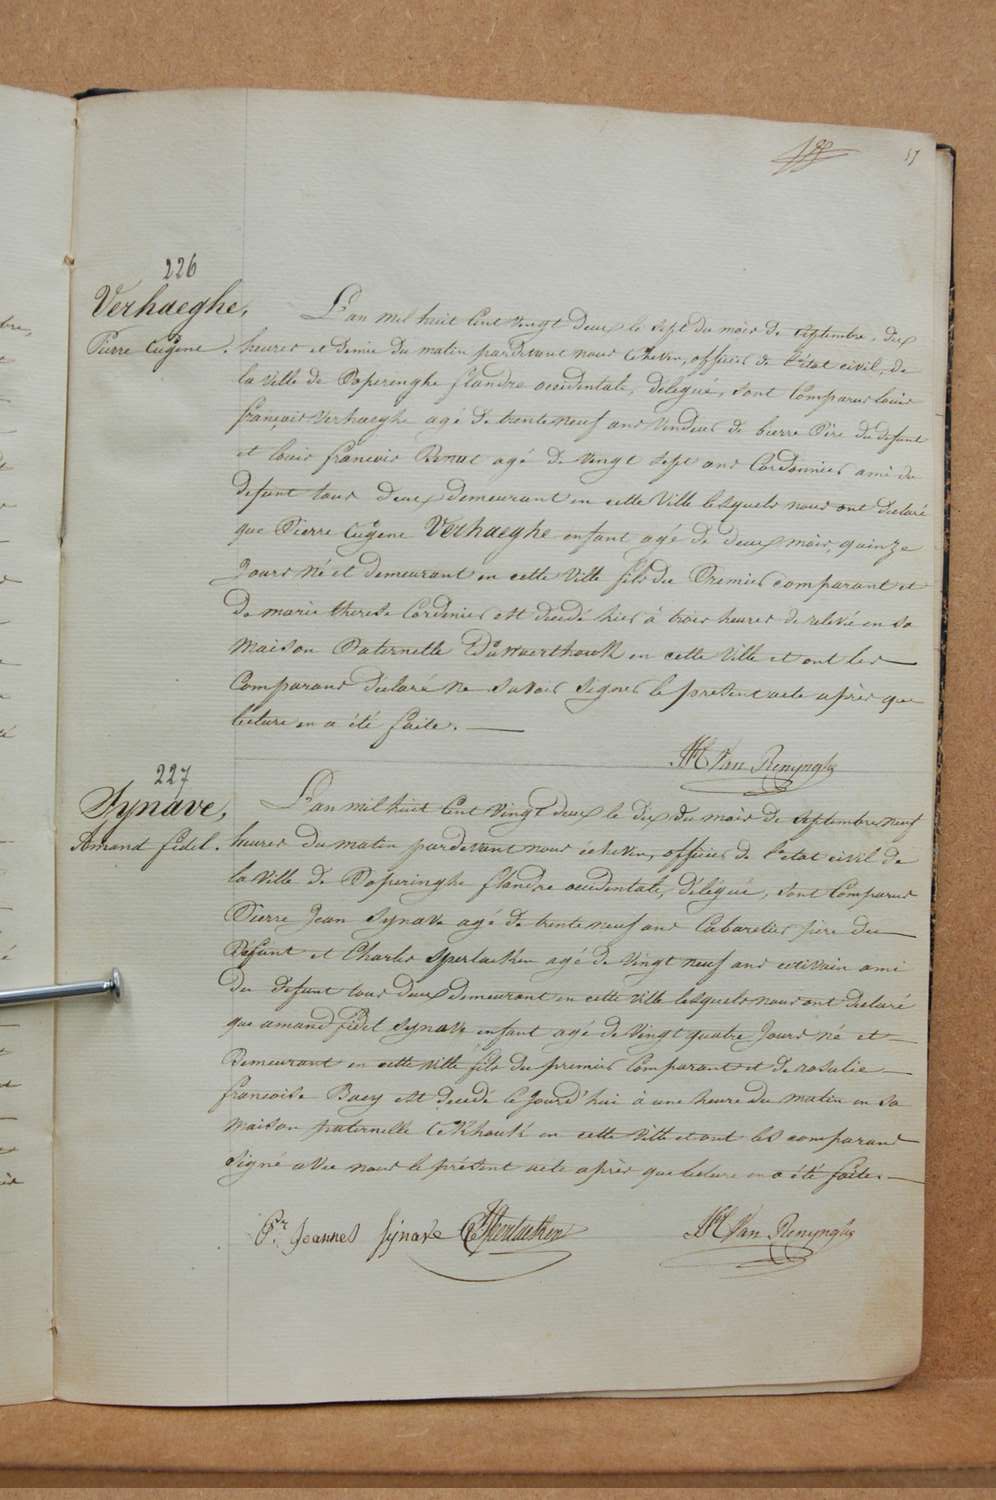 17
226
Verhaeghe,
Pierre Eugene.
L'an mil huit Cent Vingt deux le Sept du mois de Septembre, dix
heures et demie du matin pardevant nous Echevin, officier de l'état civil, de
la Ville de Poperinghe flandre occidentale, délégué, sont Comparus Louis
françois Verhaeghe agé de trente neuf ans Vendeur de bierre Père du defunt
et Louis françois agé de Vingt Sept ans Cordonnier ami du
defunt tous deux demeurant en cette Ville lesquels nous ont déclaré
que Pierre Eugene Verhaeghe enfant agé de deux mois, quinze
Jours né et demeurant en cette Ville fils du Premier comparant et
de marie therese Cordenier est decedé hier à trois heures de relevée en sa
Maison Paternelle en cette Ville et ont les
Comparans declaré ne Savoir Signer le present acte après que
lecture en a été faite.
Van Renynghe
227
Synave,
Amand fidel.
L'an mil huit Cent Vingt deux le dix du mois de Septembre neuf
heures du matin pardevant nous échevin, officier de l'état civil de
la Ville de Poperinghe flandre occidentale, délégué, sont Comparus
Pierre Jean Synave agé de trente neuf ans Cabaretier père du
Defunt et Charles Sperlaeken agé de Vingt neuf ans écrivain ami
du defunt tous deux demeurant en cette Ville lesquels nous ont déclaré
que amand fidel Synave enfant agé de Vingt quatre Jours né et
Demeurant en cette Ville fils du premier Comparant et de rosalie
francoise Baey est decedé le Jourd'hui à une heure du matin en sa
Maison paternelle en cette Ville et ont les comparans
Signé avec nous le présent acte après que lecture en a été faite.
Pr. Joannes Synave C Sperlaeken Van Renynghe